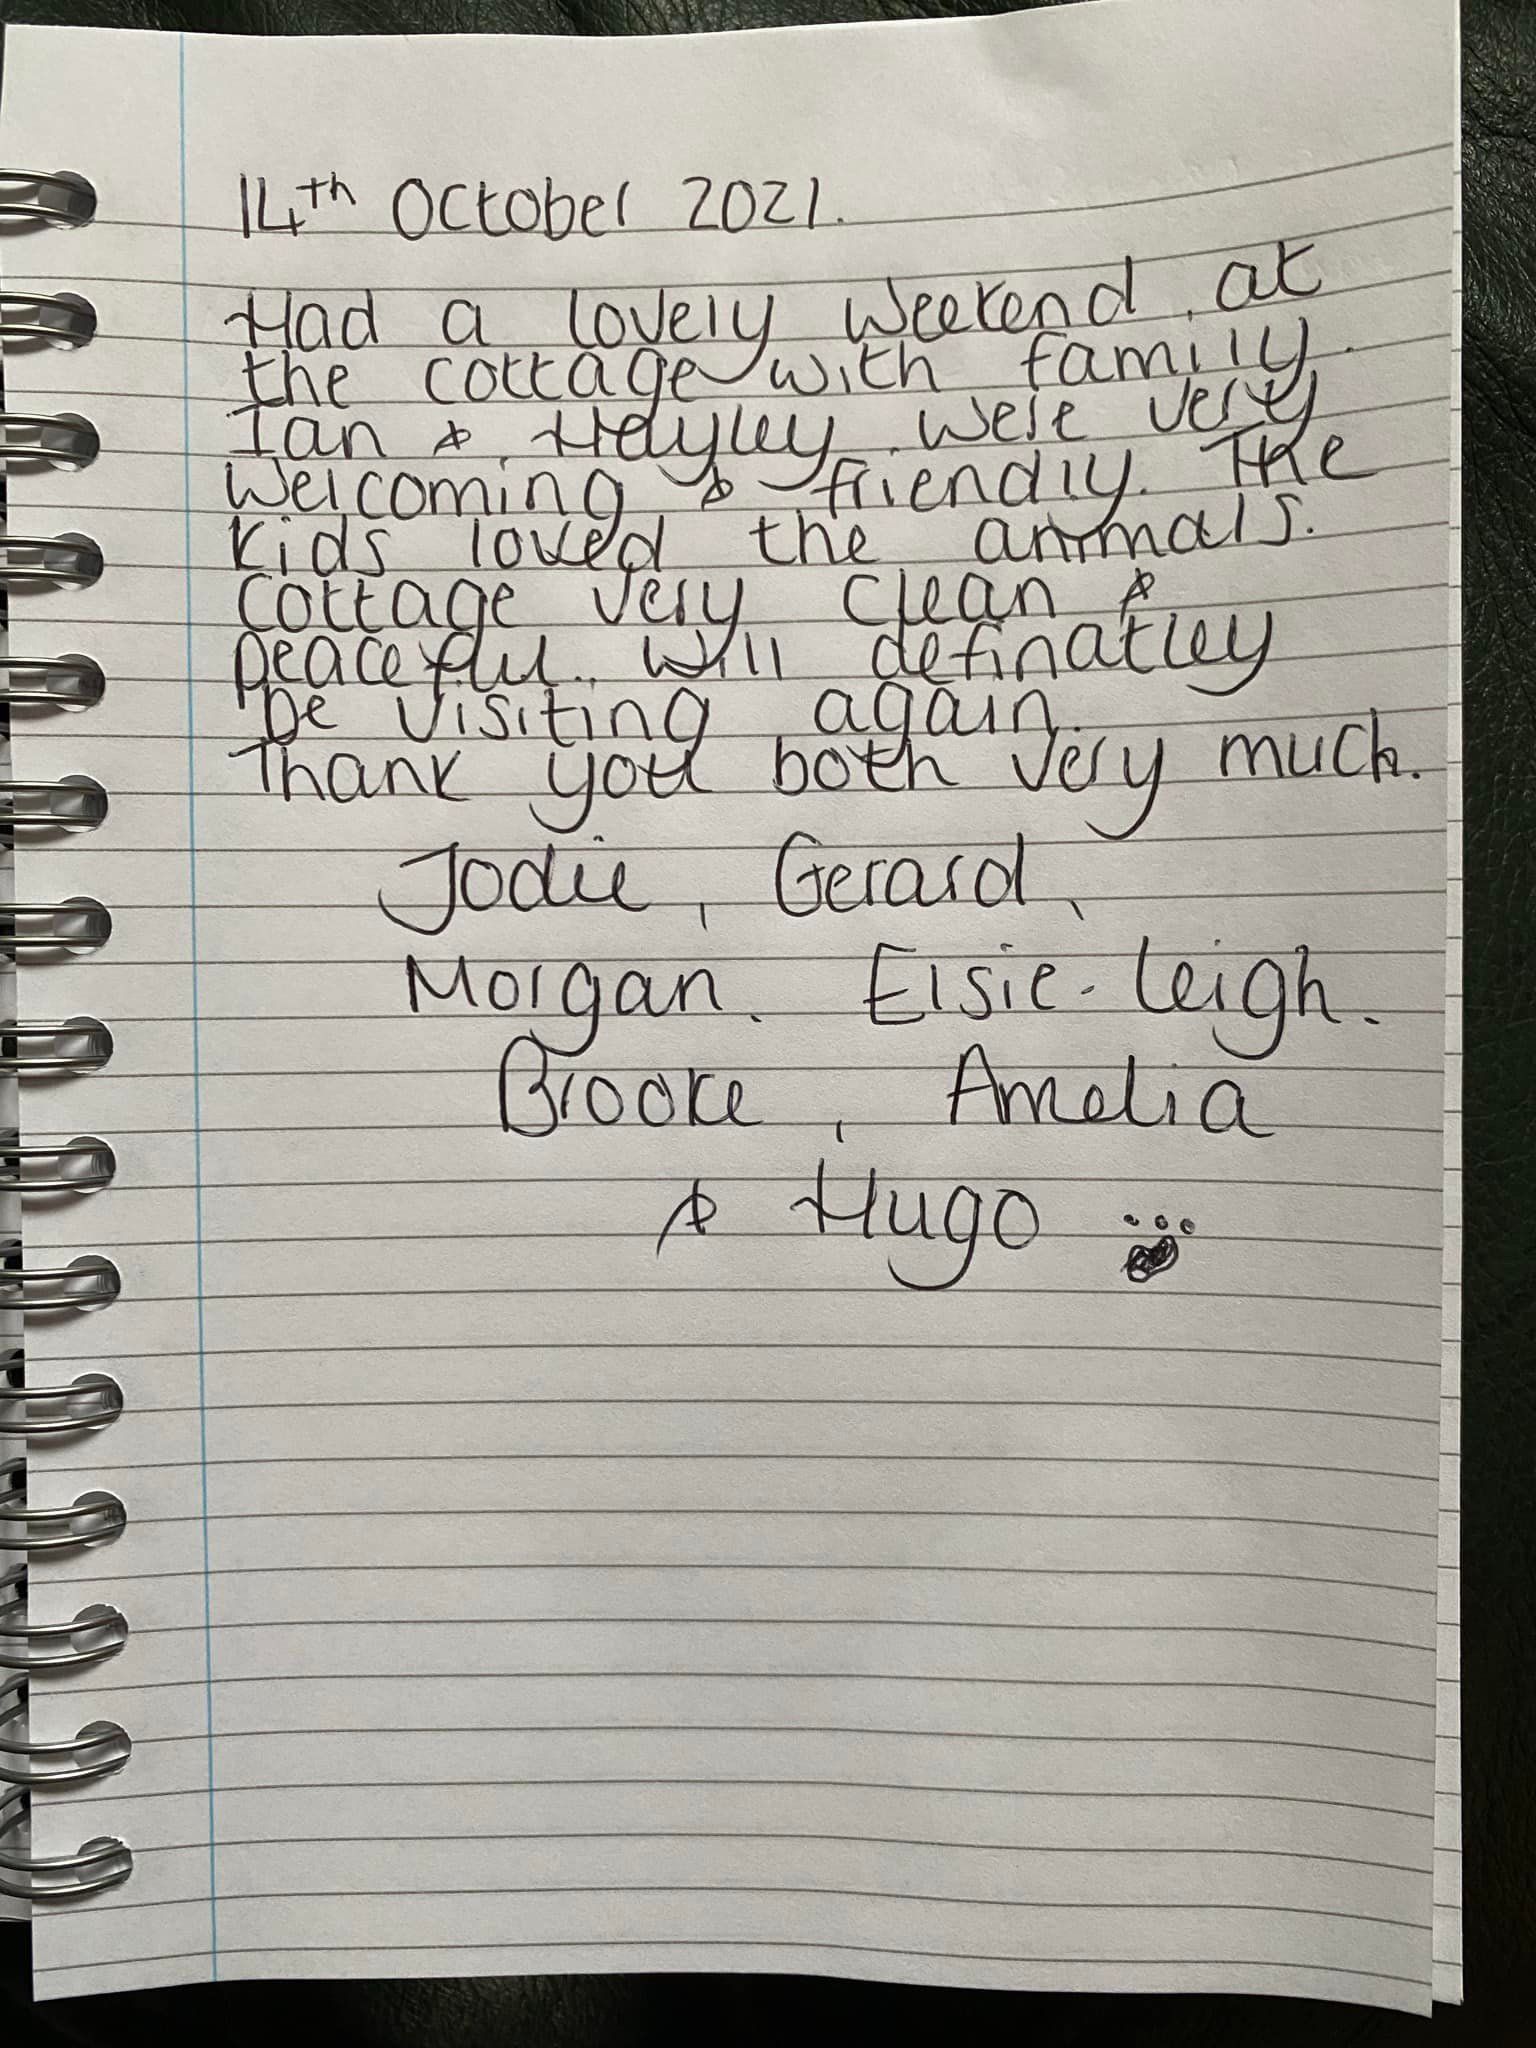 14th October 2021.
Had a lovely weekend at
the cottage with family.
Ian & Hayley were very
welcoming & friendly. The
kids loved the animals.
Cottage very clean &
peaceful.. Will definatley
be visiting again.
Thank you both very much.
Jodie, Gerard,
Morgan. Elsie-Leigh.
Brooke, Amelia
& Hugo